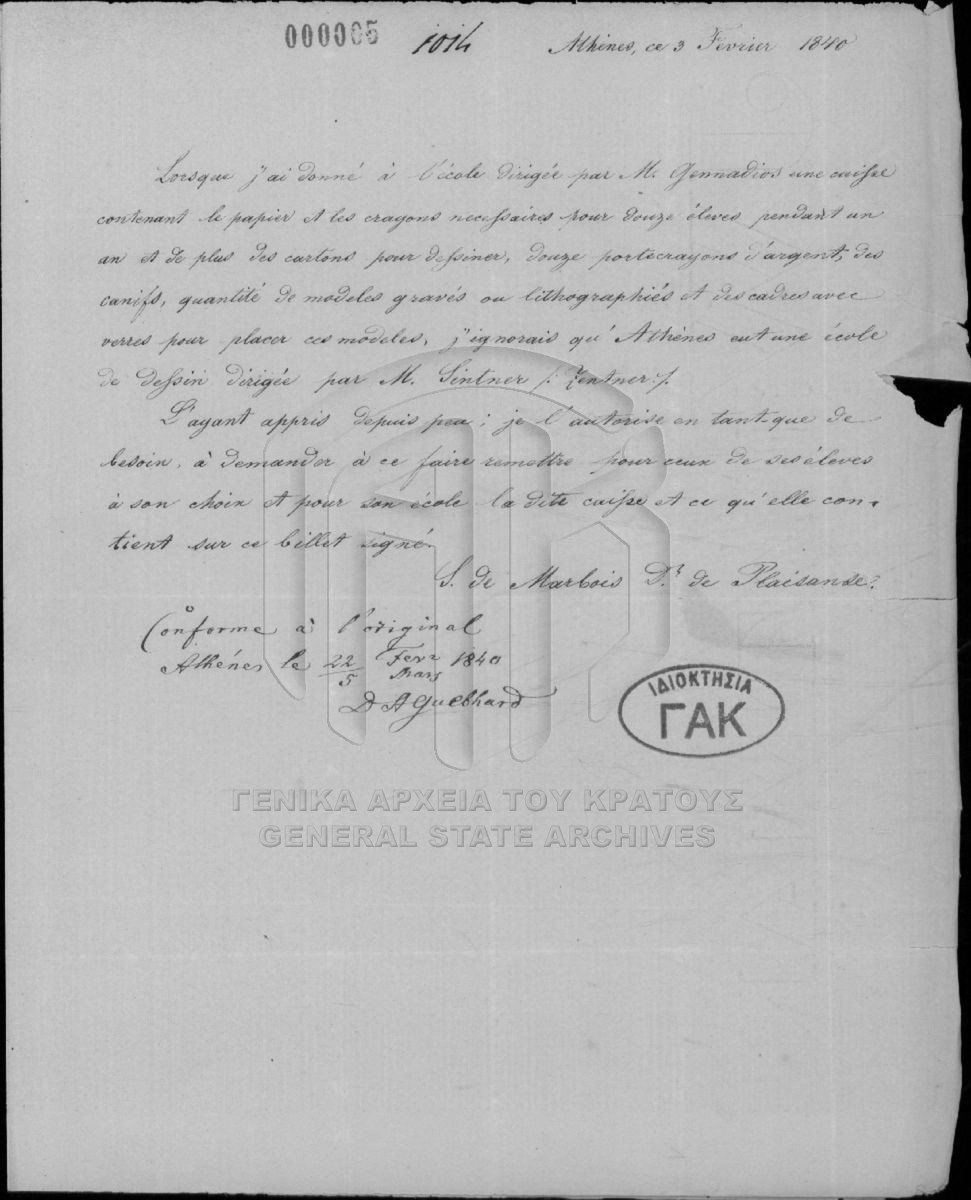 000005 1014 Athènes, ce 3 Fevrier 1840
Lorsque j'ai donné à l'école dirigée par M. Gennadios une caisse
contenant le papier et les crayons necessaires pour douze éleves pendant un
an et de plus des cartons pour dessiner, douze portecrayons d'argent, des
canifs, quantité de modeles gravés ou lithographiés et des cadres avec
verres pour placer ces modeles, j'ignorais qu'Athènes eut une école
de dessin dirigée par M. Sintner /: Zentner :/.
L'ayant appris depuis peu ; je l'autorise en tant que de
besoin, à demander à ce faire remettre pour ceux de ses éleves
à son choix et pour son école la dite caisse et ce qu'elle con-
tient sur ce billet signé.
S. de Marbois D. de Plaisance.
Conforme à l'original
Athénes le 22/5 Fevr/Mars 1840
D A Guebhard
ΙΔΙΟΚΤΗΣΙΑ
ΓΑΚ
ΓΕΝΙΚΑ ΑΡΧΕΙΑ ΤΟΥ ΚΡΑΤΟΥΣ
GENERAL STATE ARCHIVES